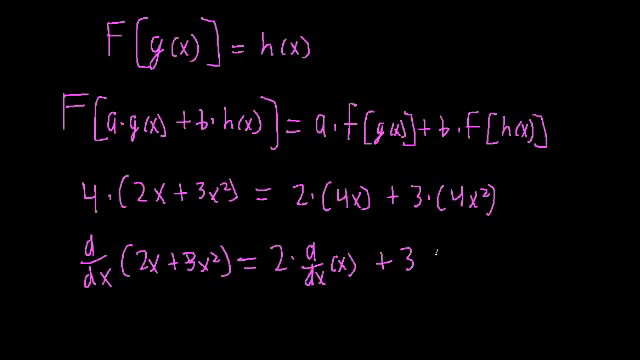 F[g(x)] = h(x)
F[a·g(x) + b·h(x)] = a·f[g(x)] + b·F[h(x)]
4·(2x + 3x²) = 2·(4x) + 3·(4x²)
d/dx (2x + 3x²) = 2·d/dx (x) + 3